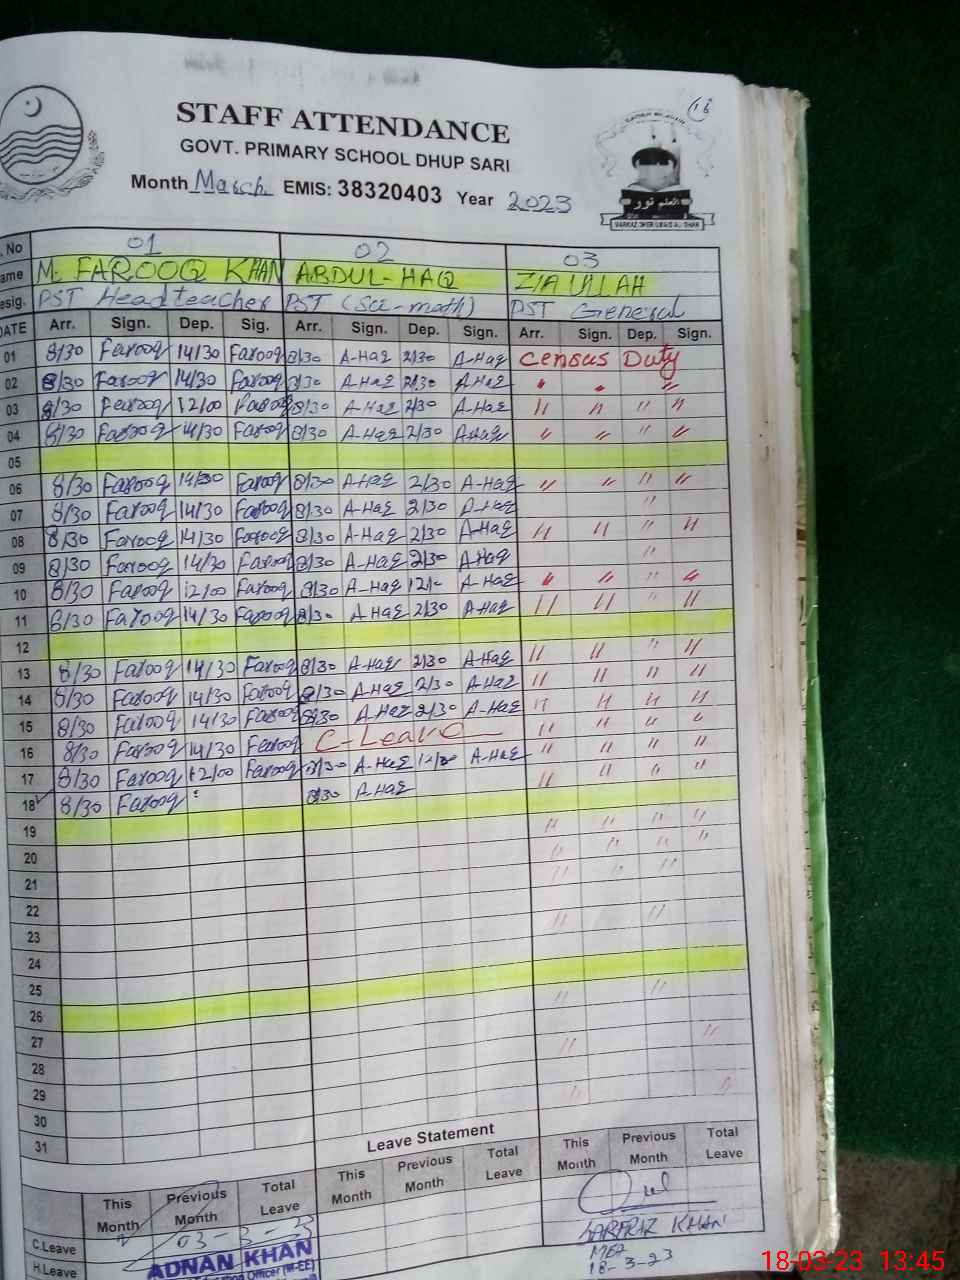 16
STAFF ATTENDANCE
GOVT. PRIMARY SCHOOL DHUP SARI
Month March EMIS: 38320403 Year 2023
العلم نور
No 01 02 03
ame M. FAROOQ KHAN ABDUL-HAQ ZIA ULLAH
esig. PST Headteacher PST (Sci-math) PST General
DATE Arr. Sign. Dep. Sig. Arr. Sign. Dep. Sign. Arr. Sign. Dep. Sign.
01 8/30 Farooq 14/30 Farooq 8/30 A-Haq 2/30 A-Haq Census Duty
02 8/30 Farooq 14/30 Farooq 8/30 A-Haq 2/30 A-Haq " " "
03 8/30 Farooq 12/00 Farooq 8/30 A-Haq 2/30 A-Haq " " " "
04 8/30 Farooq 14/30 Farooq 8/30 A-Haq 2/30 A-Haq " " " "
05
06 8/30 Farooq 14/30 Farooq 8/30 A-Haq 2/30 A-Haq " " " "
07 8/30 Farooq 14/30 Farooq 8/30 A-Haq 2/30 A-Haq "
08 8/30 Farooq 14/30 Farooq 8/30 A-Haq 2/30 A-Haq " " " "
09 8/30 Farooq 14/30 Farooq 8/30 A-Haq 2/30 A-Haq "
10 8/30 Farooq 12/00 Farooq 8/30 A-Haq 12/- A-Haq " " " "
11 8/30 Farooq 14/30 Farooq 8/30 A-Haq 2/30 A-Haq " " " "
12
13 8/30 Farooq 14/30 Farooq 8/30 A-Haq 2/30 A-Haq " " " "
14 8/30 Farooq 14/30 Farooq 8/30 A-Haq 2/30 A-Haq " " " "
15 8/30 Farooq 14/30 Farooq 8/30 A-Haq 2/30 A-Haq " " " "
16 8/30 Farooq 14/30 Farooq C-Leave " " " "
17 8/30 Farooq 12/00 Farooq 8/30 A-Haq 12/00 A-Haq " " " "
18 8/30 Farooq 8/30 A-Haq " " " "
19
20
21
22
23
24
25
26
27
28
29
30
31
Leave Statement
This Month Previous Month Total Leave This Month Previous Month Total Leave This Month Previous Month Total Leave
C.Leave
H.Leave
03-3-23
ADNAN KHAN
Officer (M-EE)
SARFRAZ KHAN
MEA
18-3-23
18-03-23 13:45